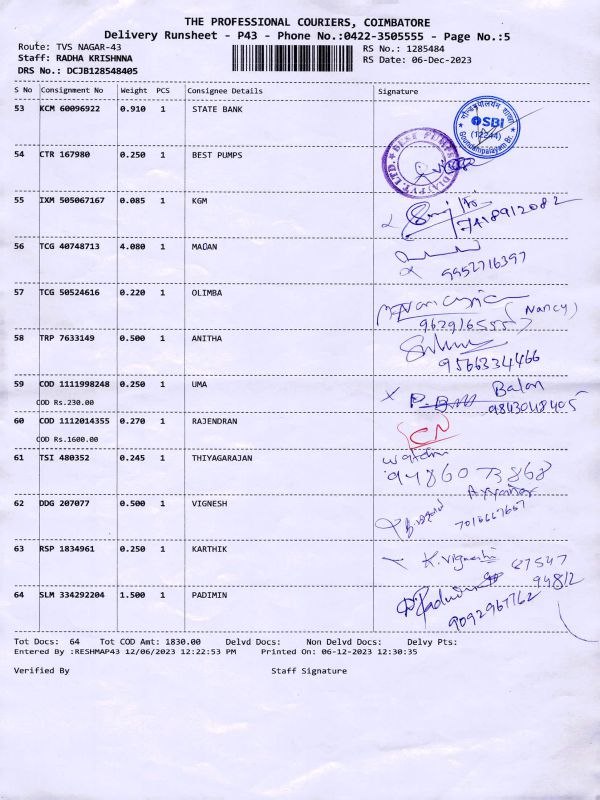 THE PROFESSIONAL COURIERS, COIMBATORE
Delivery Runsheet - P43 - Phone No.:0422-3505555 - Page No.:5
Route: TVS NAGAR-43 RS No.: 1285484
Staff: RADHA KRISHNNA RS Date: 06-Dec-2023
DRS No.: DCJB128548405
S No Consignment No Weight PCS Consignee Details Signature
53 KCM 60096922 0.910 1 STATE BANK
SBI
(12244)
54 CTR 167980 0.250 1 BEST PUMPS
55 IXM 505067167 0.085 1 KGM
56 TCG 40748713 4.080 1 MADAN
9952716397
57 TCG 50524616 0.220 1 OLIMBA
(Nancy)
58 TRP 7633149 0.500 1 ANITHA
9566334466
59 COD 1111998248 0.250 1 UMA
Balan
COD Rs.230.00
9843048405
60 COD 1112014355 0.270 1 RAJENDRAN
CN
COD Rs.1600.00
61 TSI 480352 0.245 1 THIYAGARAJAN
9486073868
62 DDG 207077 0.500 1 VIGNESH
63 RSP 1834961 0.250 1 KARTHIK
K. Vignesh 87547
94812
64 SLM 334292204 1.500 1 PADIMIN
9092967762
Tot Docs: 64 Tot COD Amt: 1830.00 Delvd Docs: Non Delvd Docs: Delvy Pts:
Entered By :RESHMAP43 12/06/2023 12:22:53 PM Printed On: 06-12-2023 12:30:35
Verified By Staff Signature